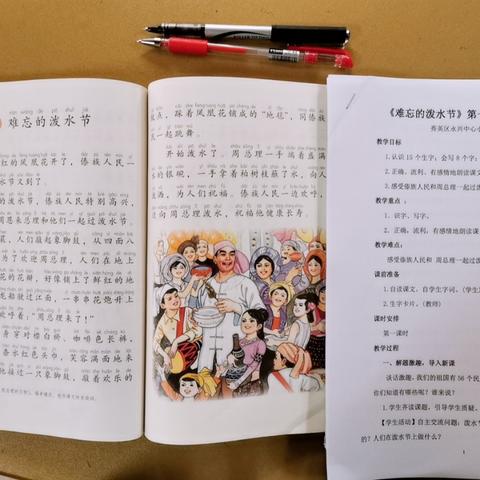 难忘的泼水节
红的凤凰花开了，傣族人民一
水节又到了。
的泼水节，傣族人民特别高兴，
周恩来总理和他们一起过泼水节。
晨，人们敲起象脚鼓，从四面八
为了欢迎周总理，人们在地上
花的花瓣，好像铺上了鲜红的地
龙船驶过江面，一串串花炮升上
欢呼着：“周总理来了！”
身穿对襟白褂，咖啡色长裤，
着水红色头巾，笑容满面地来
他接过一只象脚鼓，敲着欢乐的
鼓点，踩着凤凰花铺成的“地毯”，同傣族
一起跳舞。
开始泼水了。周总理一手端着盛满
的银碗，一手拿着柏树枝蘸了水，向人
泼洒，为人们祝福。傣族人民一边欢呼，
边向周总理泼水，祝福他健康长寿。
《难忘的泼水节》第一
秀英区永兴中心小
教学目标
1.认识15个生字；会写8个字；
2.正确、流利、有感情地朗读课文
3.感受傣族人民和周总理一起过泼水
教学重点：
1.识字、写字。
2.正确、流利、有感情地朗读课
教学难点：
感受傣族人民和周总理一起过泼
课前准备
1.自读课文，自学生字词。（学生
2.生字卡片。（教师）
课时安排
第一课时
教学过程
一、解题激趣，导入新课
谈话激趣。我们的祖国有56个民
你们知道有哪些呢？谁来说？
1.学生齐读课题，引导学生质疑。
【学生活动】自主交流问题：泼水节
的？人们在泼水节上做什么？
1